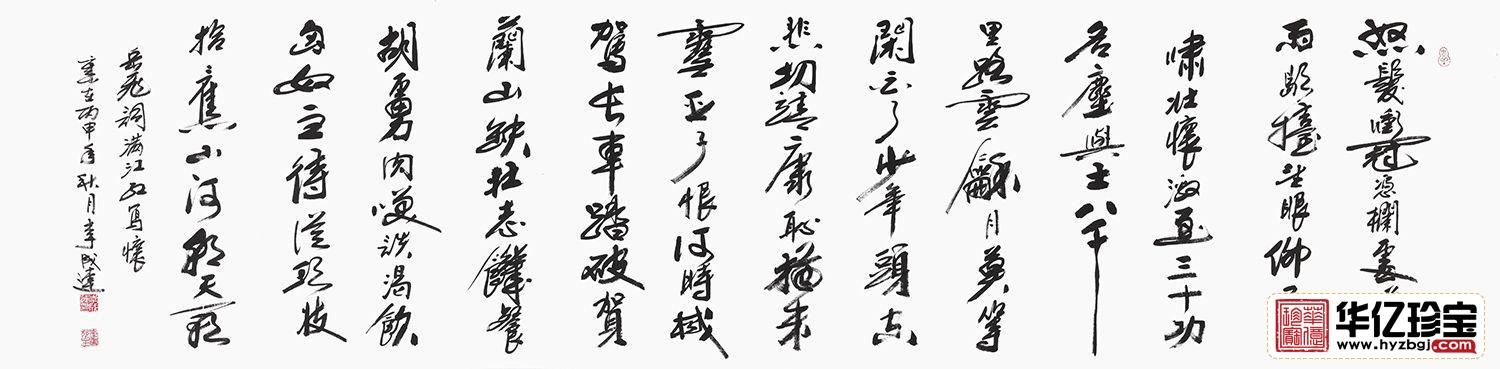 怒髮衝冠憑欄處
雨歇擡望眼仰天
嘯壯懷激烈三十功
名塵與土八千
里路雲龢月莫等
閑白了少年頭空
悲切靖康恥猶未
雪臣子恨何時滅
駕長車踏破賀
蘭山缺壯志饑餐
胡虜肉笑談渴飲
匈奴血待從頭收
拾舊山河朝天闕
岳飛詞滿江紅寫懷
歲在丙申年秋月李成
华亿珍宝
www.hyzbgj.com